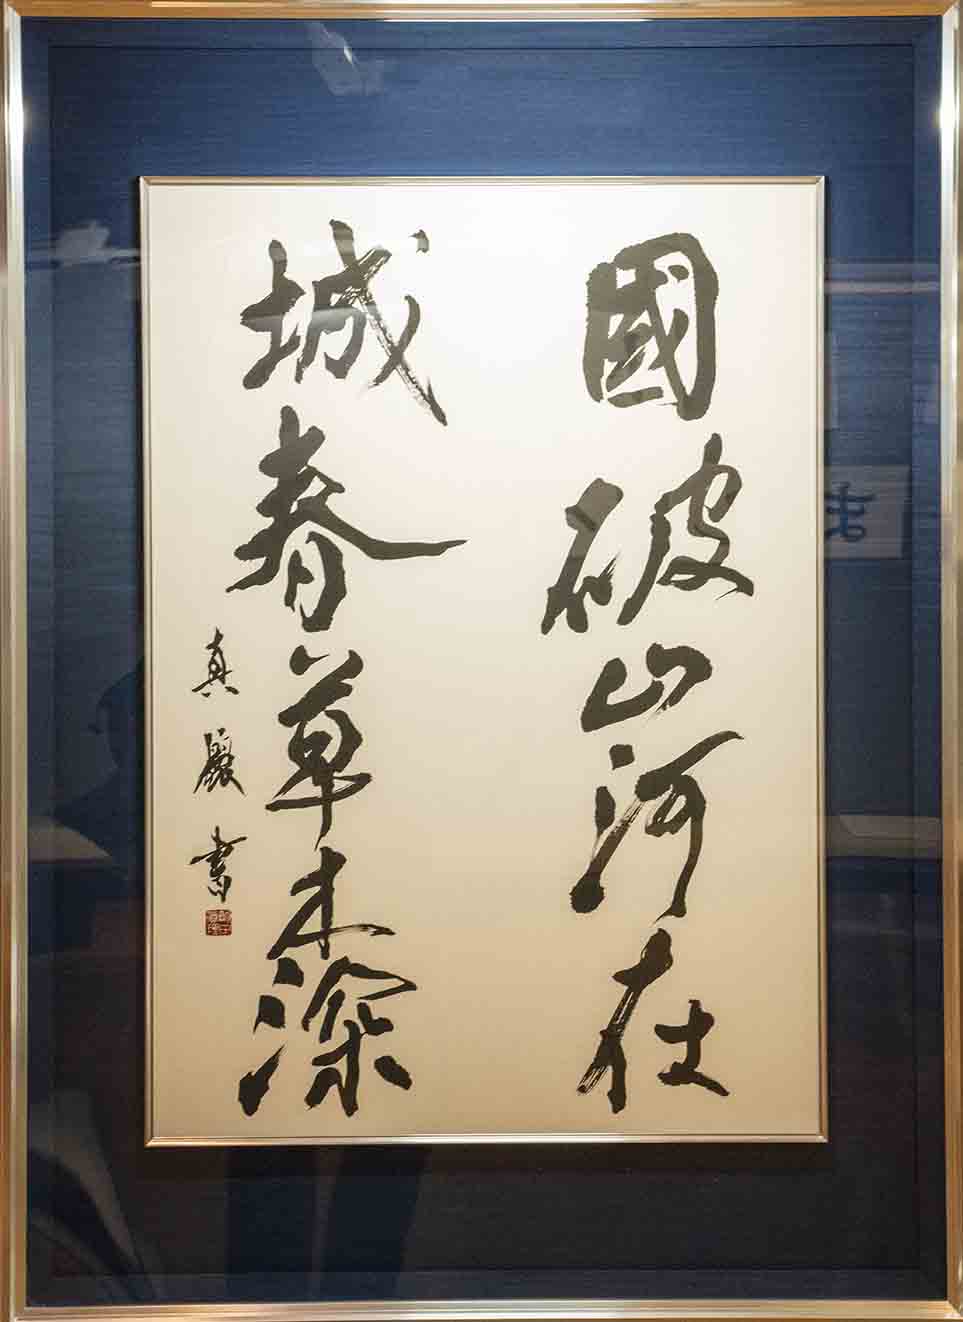 國破山河在
城春草木深
真嚴書